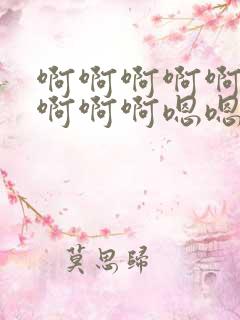 啊啊啊啊啊
啊啊啊嗯嗯
莫思歸